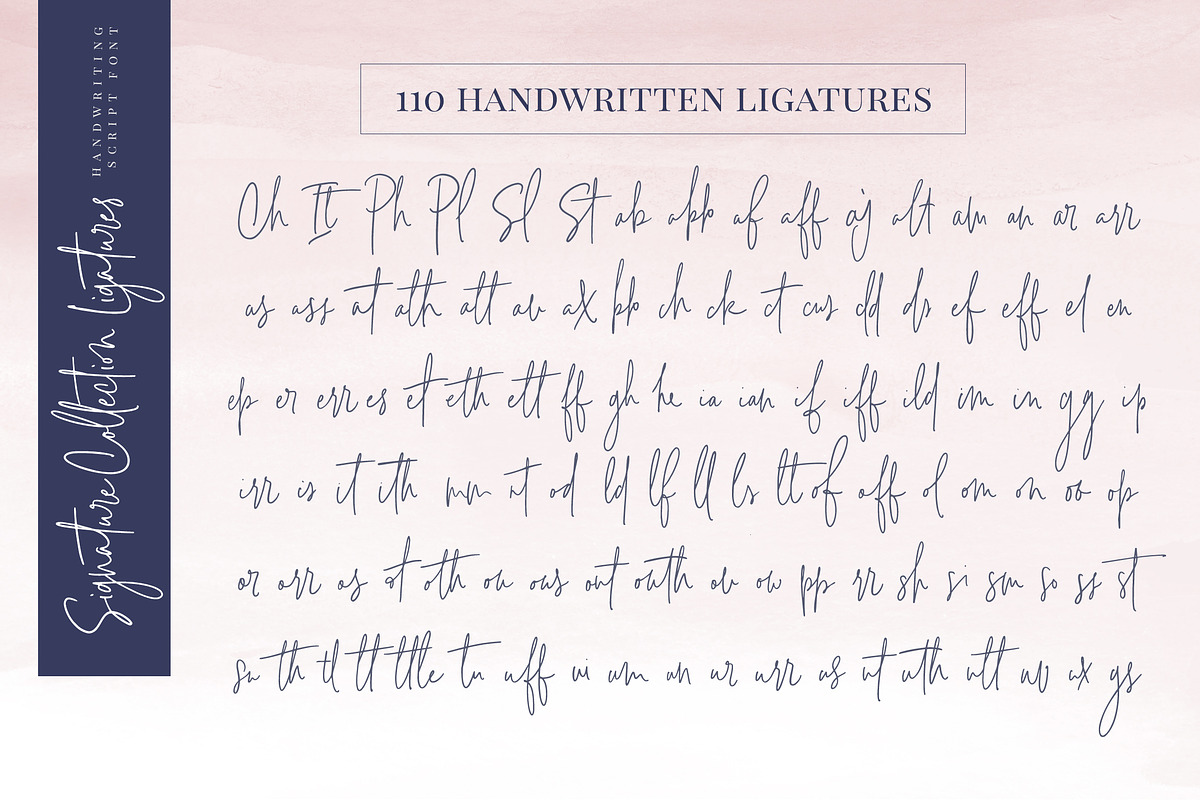 HANDWRITING
SCRIPT FONT
Signature Collection Ligatures
110 HANDWRITTEN LIGATURES
Ch It Ph Pl Sl St ab abb af aff aj alt am an ar arr
as ass at ath att av ax bb ch ck ct cus dd ds ef eff el en
ep er err es et eth ett ff gh he ia ian if iff ild im in gg ip
irr is it ith mm nt od ld lf ll ls lt of off ol om on oo op
or orr os ot oth ou ous out outh ov ow pp rr sh si sm so ss st
su th tl tt ttle tu uff ui um un ur urr us ut uth utt uv ux ys